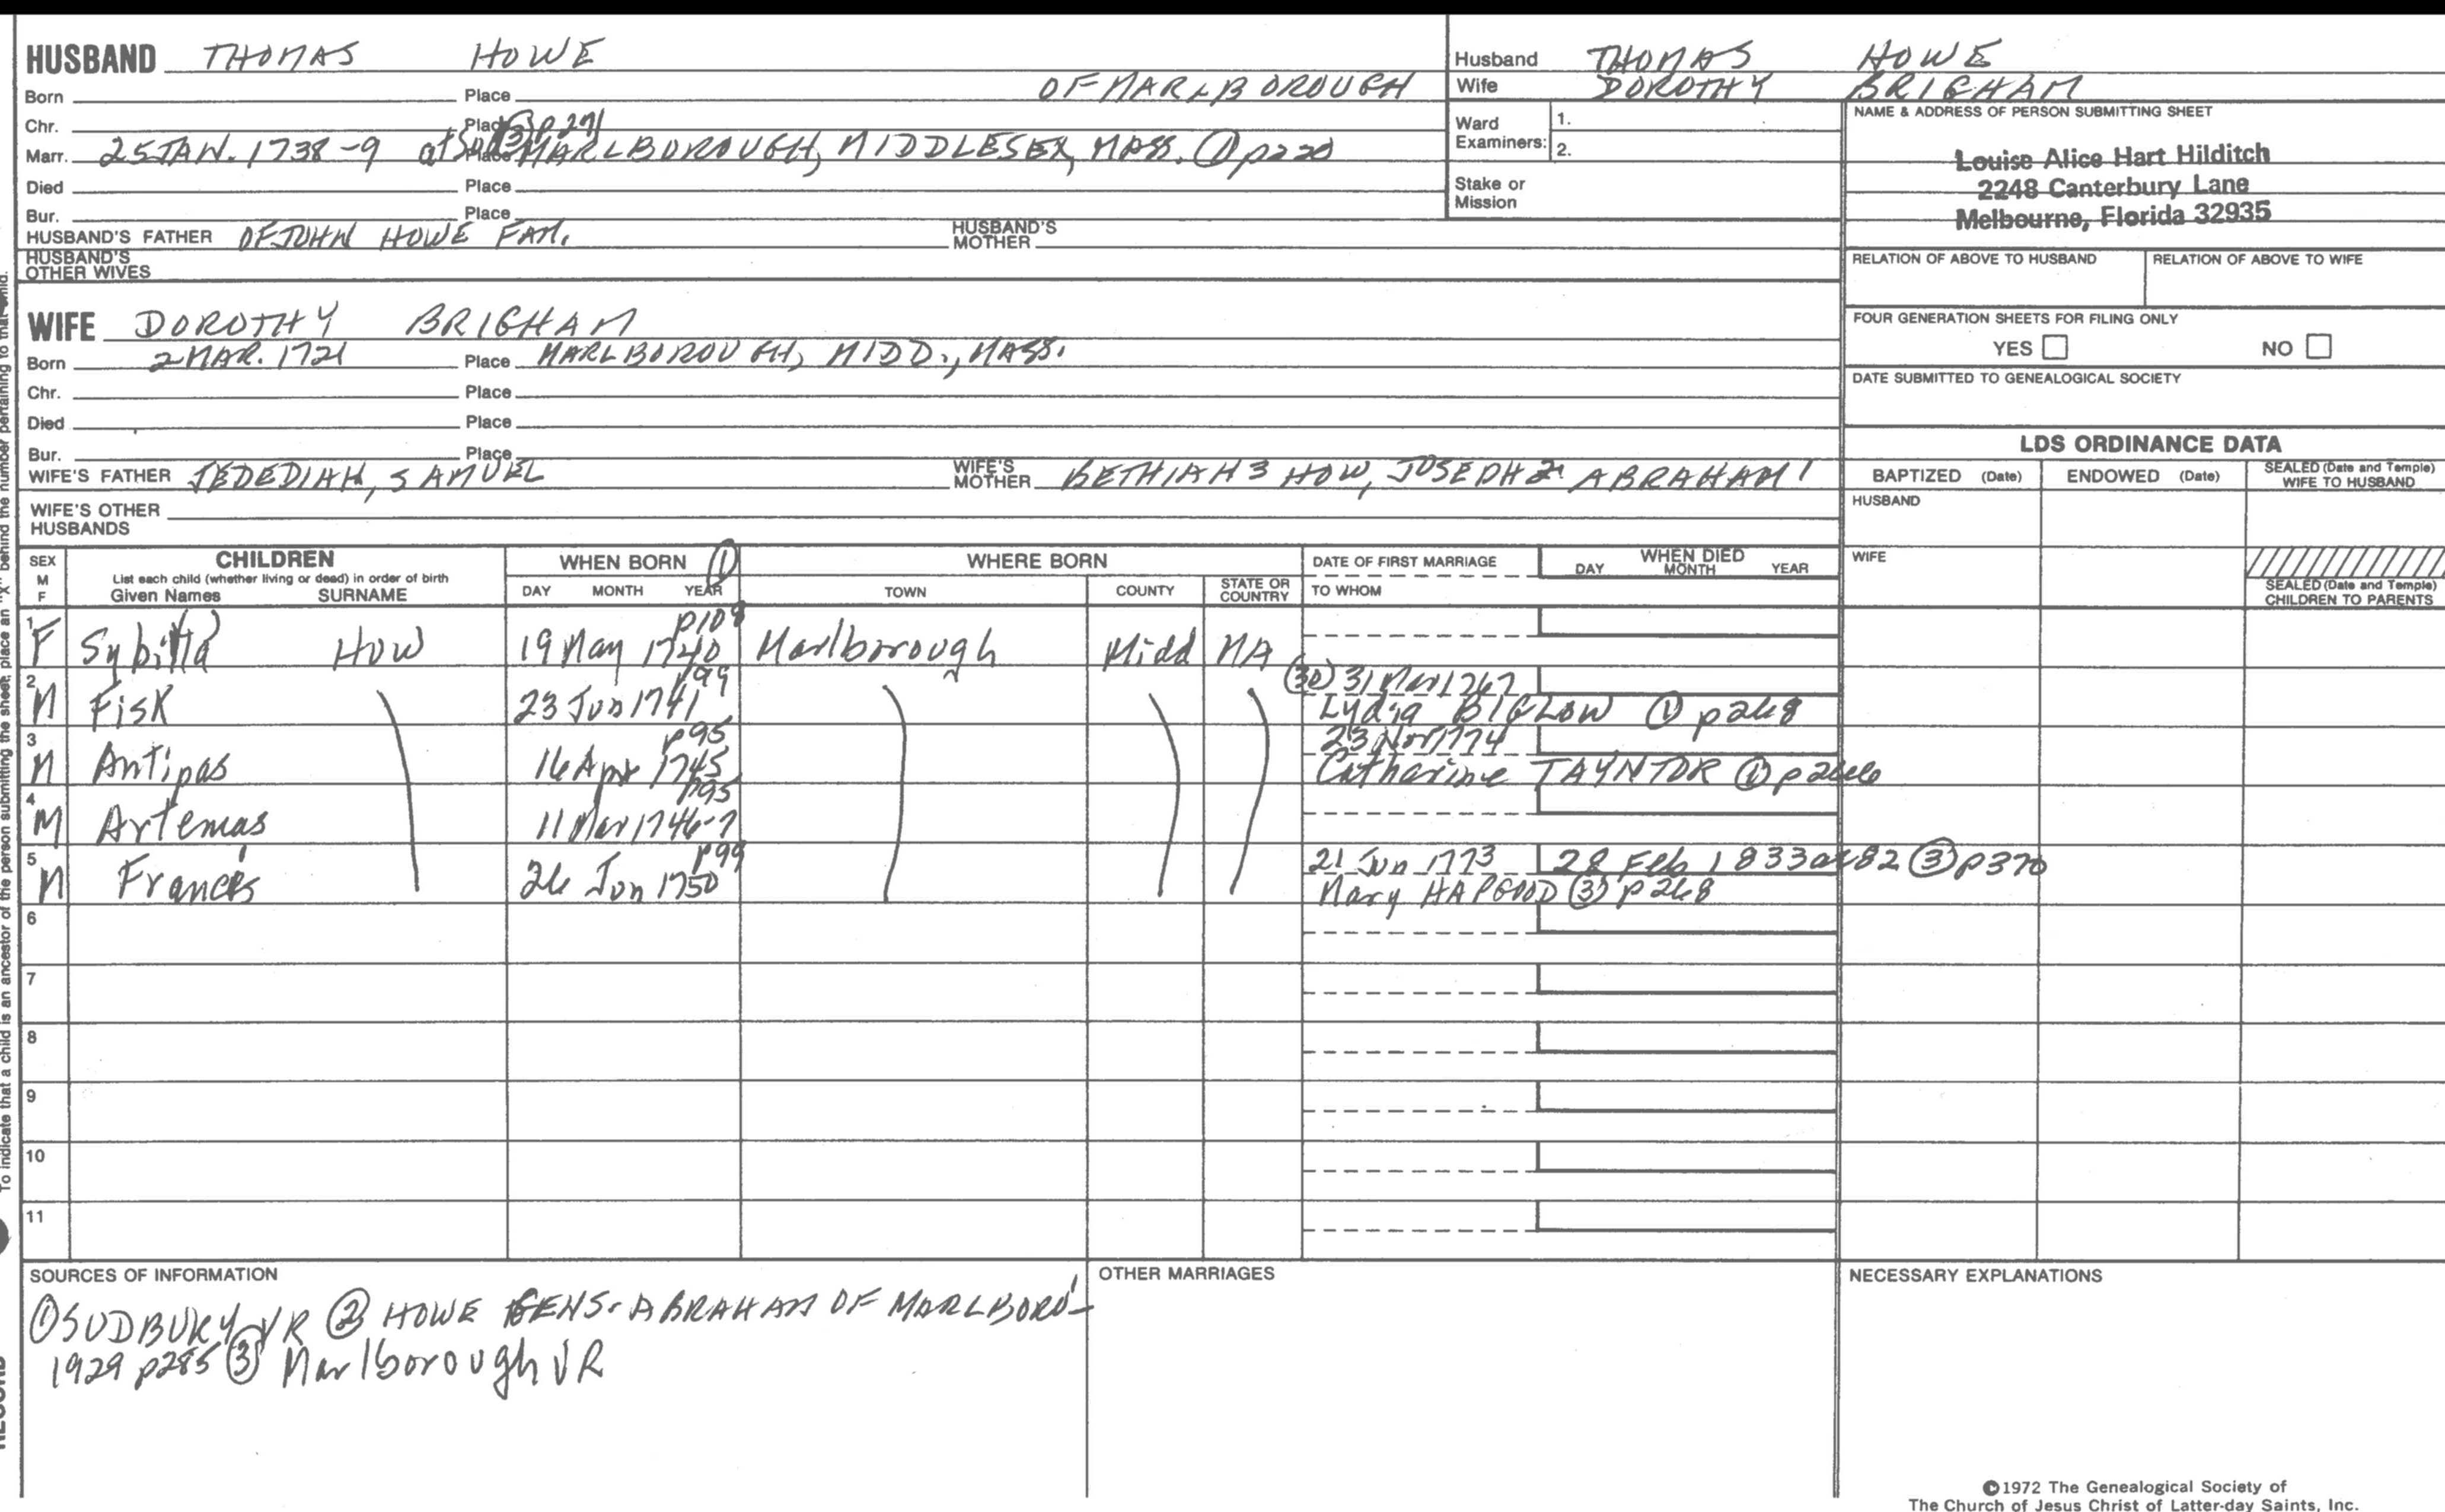 HUSBAND THOMAS HOWE
Born Place OF MARLBOROUGH
Chr. Place ③ p 271
Marr. 25 JAN. 1738-9 at Sud MARLBOROUGH, MIDDLESEX, MASS. ① p220
Died Place
Bur. Place
HUSBAND'S FATHER OF JOHN HOWE FAM. HUSBAND'S MOTHER
HUSBAND'S OTHER WIVES
Husband THOMAS HOWE
Wife DOROTHY BRIGHAM
Ward Examiners: 1.
2.
Stake or Mission
NAME & ADDRESS OF PERSON SUBMITTING SHEET
Louise Alice Hart Hilditch
2248 Canterbury Lane
Melbourne, Florida 32935
RELATION OF ABOVE TO HUSBAND RELATION OF ABOVE TO WIFE
FOUR GENERATION SHEETS FOR FILING ONLY
YES NO
DATE SUBMITTED TO GENEALOGICAL SOCIETY
WIFE DOROTHY BRIGHAM
Born 2 MAR. 1721 Place MARLBOROUGH, MIDD., MASS.
Chr. Place
Died Place
Bur. Place
WIFE'S FATHER JEDEDIAH, SAMUEL WIFE'S MOTHER BETHIAH 3 HOW, JOSEPH 2 ABRAHAM 1
WIFE'S OTHER HUSBANDS
LDS ORDINANCE DATA
BAPTIZED (Date) ENDOWED (Date) SEALED (Date and Temple) WIFE TO HUSBAND
HUSBAND
WIFE
SEALED (Date and Temple) CHILDREN TO PARENTS
SEX M F CHILDREN WHEN BORN ① WHERE BORN DATE OF FIRST MARRIAGE WHEN DIED
List each child (whether living or dead) in order of birth
Given Names SURNAME DAY MONTH YEAR TOWN COUNTY STATE OR COUNTRY TO WHOM DAY MONTH YEAR
p108
1 F Sybilla How 19 May 1740 Marlborough Midd MA
p99 (30) 31 Mar 1767
2 M Fisk 23 Jun 1741 Lydia BIGLOW ① p268
p95 23 Nov 1774
3 M Antipas 16 Apr 1745 Catharine TAYNTOR ① p266
p95
4 M Artemas 11 Mar 1746-7
p99 21 Jun 1773 28 Feb 1833 ae 82 ③ p370
5 M Francis 26 Jun 1750 Mary HAPGOOD ③ p268
6
7
8
9
10
11
SOURCES OF INFORMATION
① SUDBURY VR ② HOWE GENS. ABRAHAM OF MARLBORO'
1929 p285 ③ Marlborough VR
OTHER MARRIAGES
NECESSARY EXPLANATIONS
©1972 The Genealogical Society of
The Church of Jesus Christ of Latter-day Saints, Inc.
To indicate that a child is an ancestor of the person submitting the sheet, place an "X" behind the number pertaining to that child.